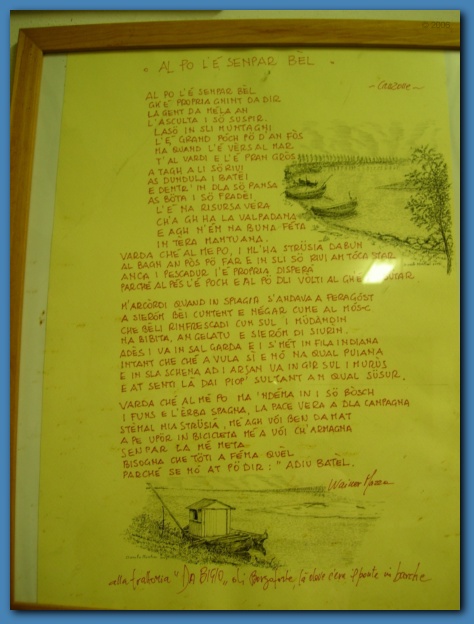 " AL PO L'É SENPAR BÈL "
~ Canzone ~
AL PO L'É SENPAR BÈL
GH'É PROPRIA GNINT DA DIR
LA GENT DA MÈLA AN
L'ASCULTA I SÖ SUSPIR.
LASÖ IN SLI MUNTAGNI
L'É GRAND POCH PÖ D'AN FÒS
MA QUAND L'É VERS AL MAR
T'AL VARDI E L'É PRAN GRÒS
A TAGH A LI SÖ RIVI
AS DUNDULA I BATÉI
E DENTR' IN DLA SÖ PANSA
AS BÒTA I SÖ FRADÉI
L'É NA RISURSA VERA
CH'A GH HA LA VALPADANA
E AGH N'ÉM NA BUNA FÉTA
IN TÈRA MANTUANA.
VARDA CHÉ AL MÉ PO, I ML'HA STRÜSIÀ DABUN
AL BAGN AN PÒS PÖ FAR E IN SLI SÖ RIVI AM TÓCA STAR
ANCA I PESCADUR I'É PROPRIA DISPERÀ
PARCHÉ AL PÈS L'É POCH E AL PÖ DLI VOLTI AL GHE
M'ARCÒRDI QUAND IN SPIAGIA S'ANDAVA A FERAGÓST
A SIERÓM BEI CUNTENT E NÉGAR CUME AL MÓSC
CHE BÈLI RINFRESCADI CUN SUL I MÜDANDIN
NA BIBITA, AN GELATU E SIERÓM DI SIURIN.
ADÈS I VA IN SAL GARDA E I S'MÈT IN FILA INDIANA
INTANT CHE CHÉ A VULA SÌ E NÓ NA QUAL PUIANA
E IN SLA SCHENA AD I ARSAN VA IN GIR SUL I MURÜS
E AT SENTI LÀ DAI PIOP' SULTANT AN QUAL SÜSUR.
VARDA CHÉ AL MÉ PO MA 'NDEMA IN I SÖ BÒSCH
I FUNS E L'ÈRBA SPAGNA, LA PACE VERA A DLA CAMPAGNA
STÉMAL MIA STRÜSIÀ, MÉ AGH VÖI BEN DA MAT
A PE UPÖR IN BICICLETA MÉ A VÖI CH'ARMAGNA
SENPAR LA MÉ META.
BISOGNA CHE TÖTI A FÉMA QUÈL
PARCHÉ SE NÓ AT PÖ DIR: "ADIU BATÈL.
alla trattoria "DA BIGIO" di Borgoforte, là dove c'era il ponte in barche